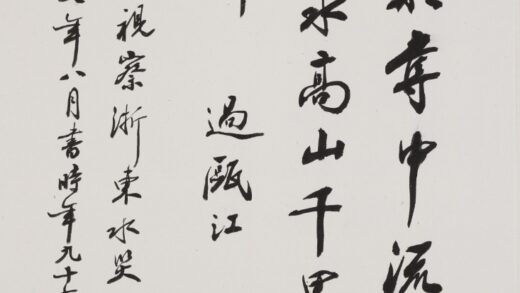 奪中流
水高山千里
過甌江
視察浙東水災
年八月書時年九十